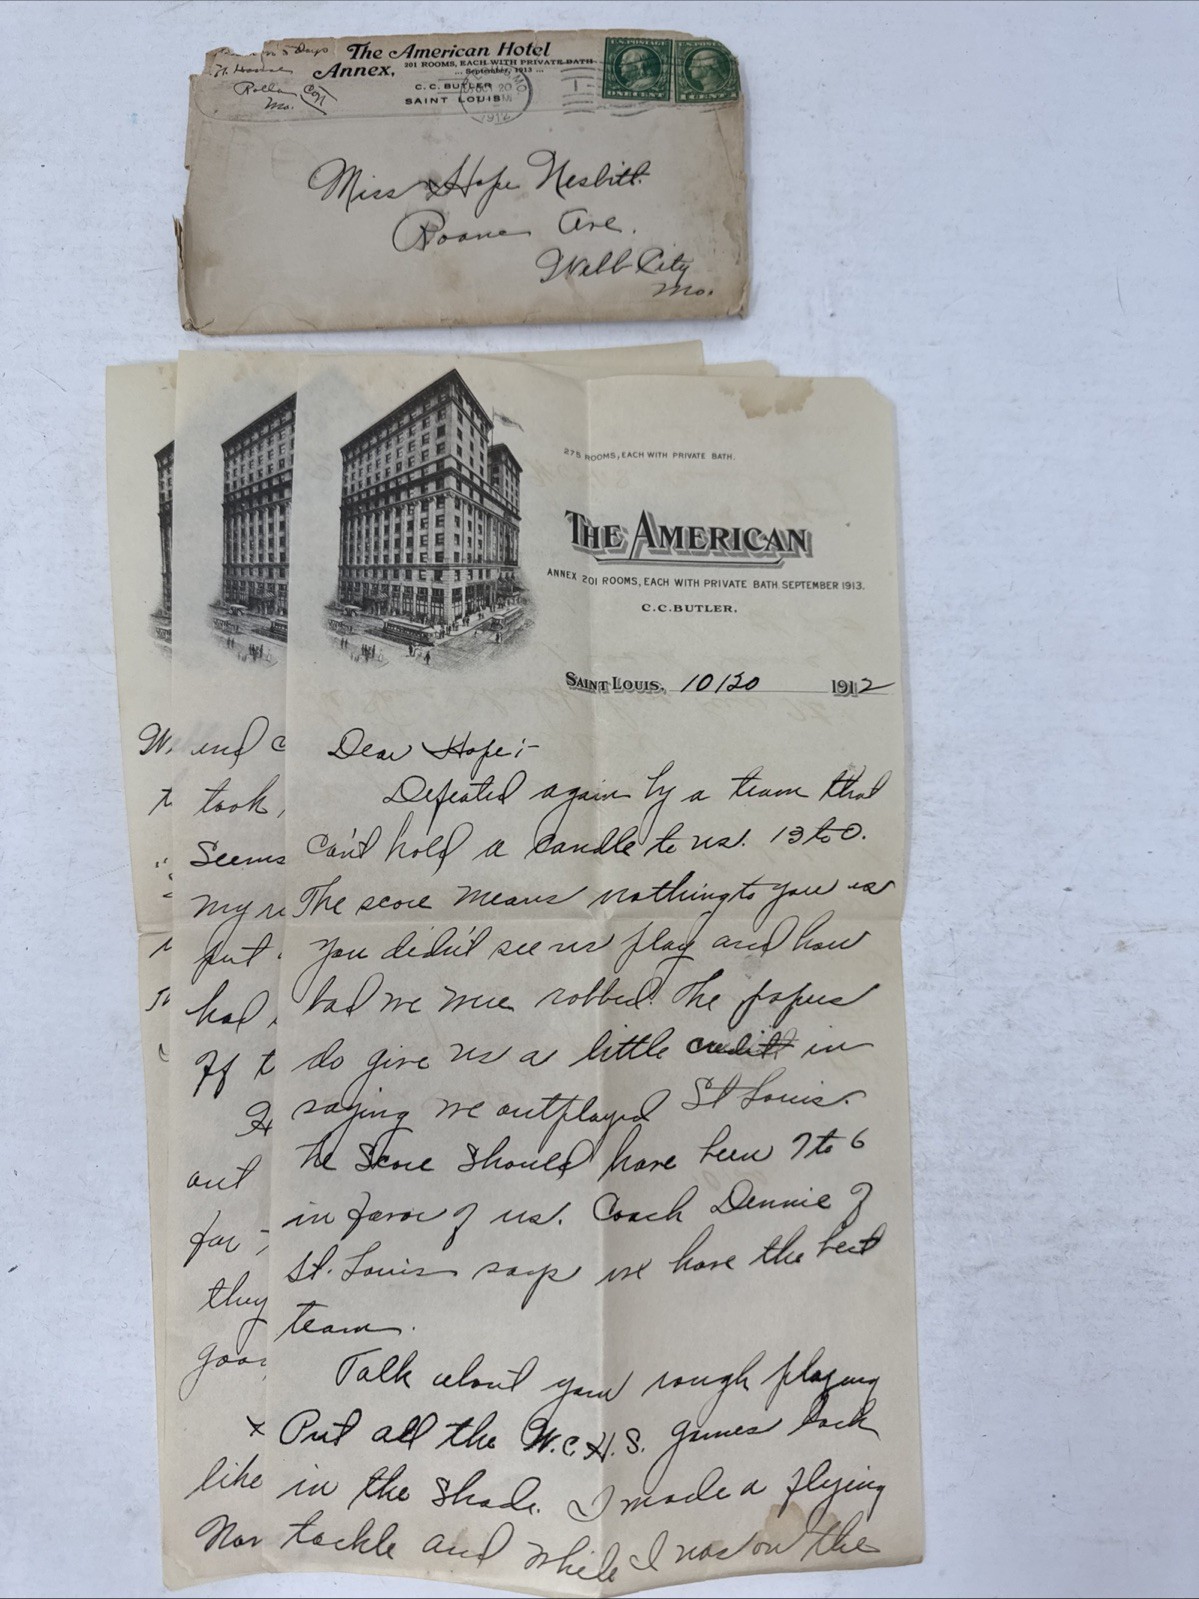 5 Days
Rolla
Mo.
The American Hotel
Annex, 201 ROOMS, EACH WITH PRIVATE BATH
... September, 1913 ...
C. C. BUTLER
SAINT LOUIS
OCT 20
1912
U.S. POSTAGE
ONE CENT
Miss Hope Nesbitt.
Roane Ave.
Webb City
Mo.
275 ROOMS, EACH WITH PRIVATE BATH.
THE AMERICAN
ANNEX 201 ROOMS, EACH WITH PRIVATE BATH. SEPTEMBER 1913.
C. C. BUTLER.
SAINT LOUIS, 10/20 1912
Dear Hope:-
Defeated again by a team that
can't hold a candle to us. 13 to 0.
The score means nothing to you as
you didn't see us play and how
bad we were robbed. The papers
do give us a little credit in
saying we outplayed St Louis.
The Score Should have been 7 to 6
in favor of us. Coach Dennie of
St. Louis says we have the best
team.
Talk about your rough playing
Put all the W.C.H.S. games back
in the Shade. I made a flying
tackle and while I was on the
W.
end
took,
Seems
my
put
had
If
out
for
they
like